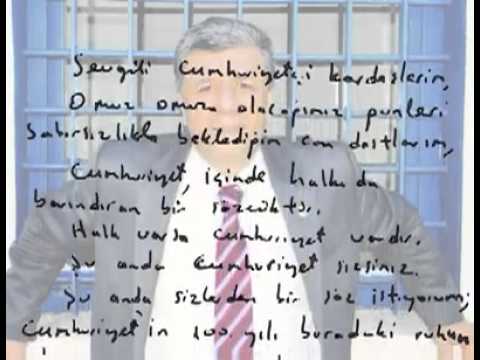 Sevgili Cumhuriyetçi kardaşlarım,
Omuz omuza olacağımız günleri
sabırsızlıkla beklediğim can dostlarım,
Cumhuriyet, içinde halkı da
barındıran bir sözcüktür.
Halk varsa Cumhuriyet vardır.
Şu anda Cumhuriyet sizsiniz.
Şu anda sizlerden bir söz istiyorum;
Cumhuriyet'in 100. yılı buradaki ruhun